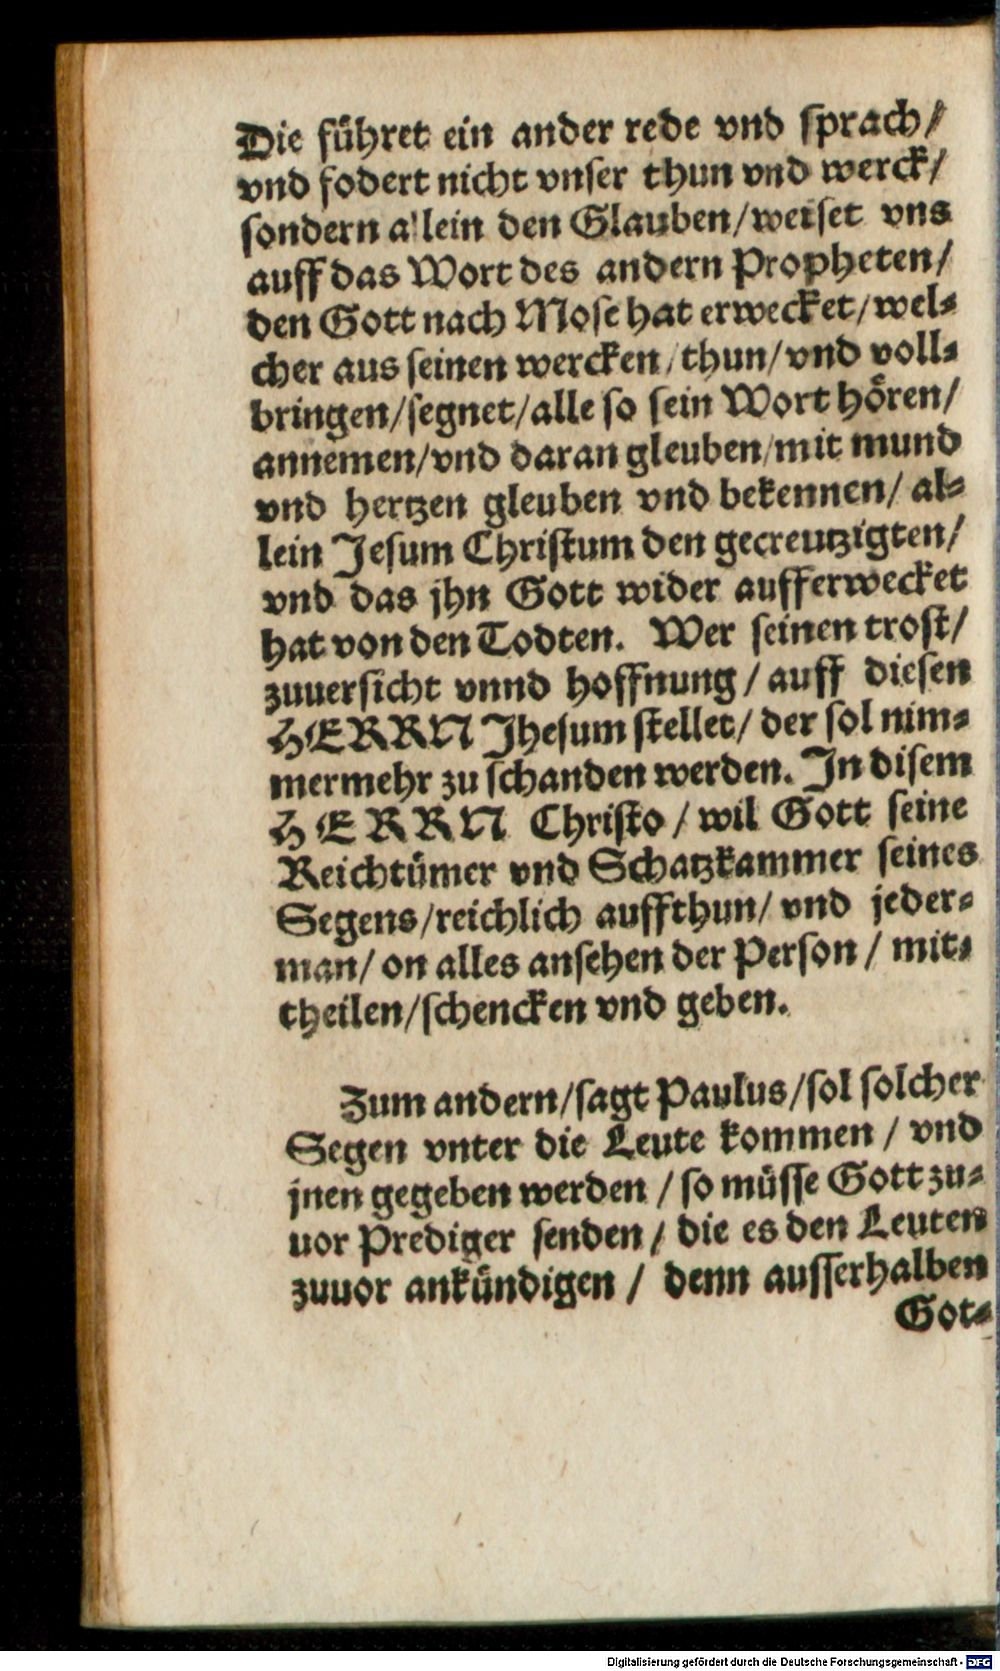 Die führet ein ander rede vnd sprach/
vnd fodert nicht vnser thun vnd werck/
sondern allein den Glauben/weiset vns
auff das Wort des andern Propheten/
den Gott nach Mose hat erwecket/wel-
cher aus seinen wercken/thun/vnd voll-
bringen/segnet/alle so sein Wort hören/
annemen/vnd daran gleuben/mit mund
vnd hertzen gleuben vnd bekennen/ al-
lein Jesum Christum den gecreutzigten/
vnd das jhn Gott wider aufferwecket
hat von den Todten. Wer seinen trost/
zuuersicht vnnd hoffnung/ auff diesen
HERRN Jhesum stellet/ der sol nim-
mermehr zu schanden werden. In disem
HERRN Christo/ wil Gott seine
Reichtümer vnd Schatzkammer seines
Segens/reichlich auffthun/ vnd jeder-
man/ on alles ansehen der Person/ mit-
theilen/schencken vnd geben.
Zum andern/sagt Paulus/sol solcher
Segen vnter die Leute kommen/ vnd
jnen gegeben werden/ so müsse Gott zu-
uor Prediger senden/ die es den Leuten
zuuor ankündigen/ denn ausserhalben
Got-
Digitalisierung gefördert durch die Deutsche Forschungsgemeinschaft - DFG